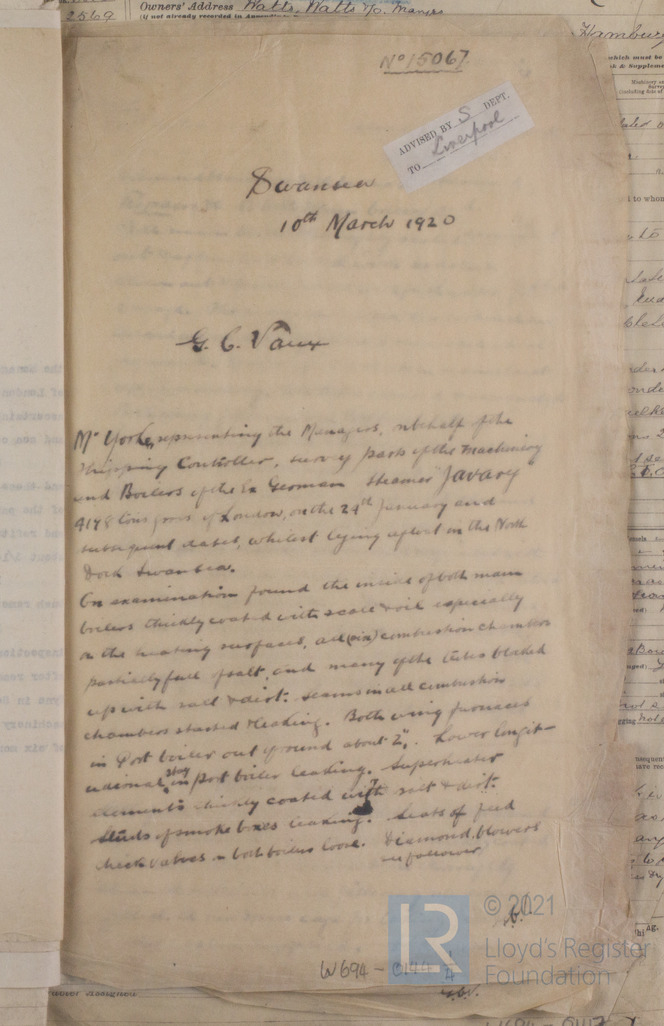 2569
Owners' Address Watts, Watts & Co. Managers
(if not already recorded in
Hamburg
which must be
No 15067
ADVISED BY S DEPT.
TO Liverpool
Swansea
10th March 1920
G. C. Vaux
Mr York, representing the Managers, on behalf of the
Shipping Controller, survey parts of the Machinery
and Boilers of the Ex German Steamer "Javary
4178 tons gross of London, on the 24th January and
subsequent dates, whilst lying afloat in the North
Dock Swansea.
On examination found the inside of both main
boilers thickly coated with scale & oil especially
on the heating surfaces, all (six) combustion chambers
partially full of salt, and many of the tubes blocked
up with salt & dirt. Seams in all combustion
chambers started & leaking. Both wing furnaces
in Port boiler out of round about 2". Lower longit-
udinal stay in port boiler leaking. Superheater
elements thickly coated with salt & dirt.
Studs of smoke boxes leaking. Seats of feed
check valves on both boilers loose. Diamond, blowers
as follower
© 2021
LR
Lloyd's Register
Foundation
W694-0144 1/4